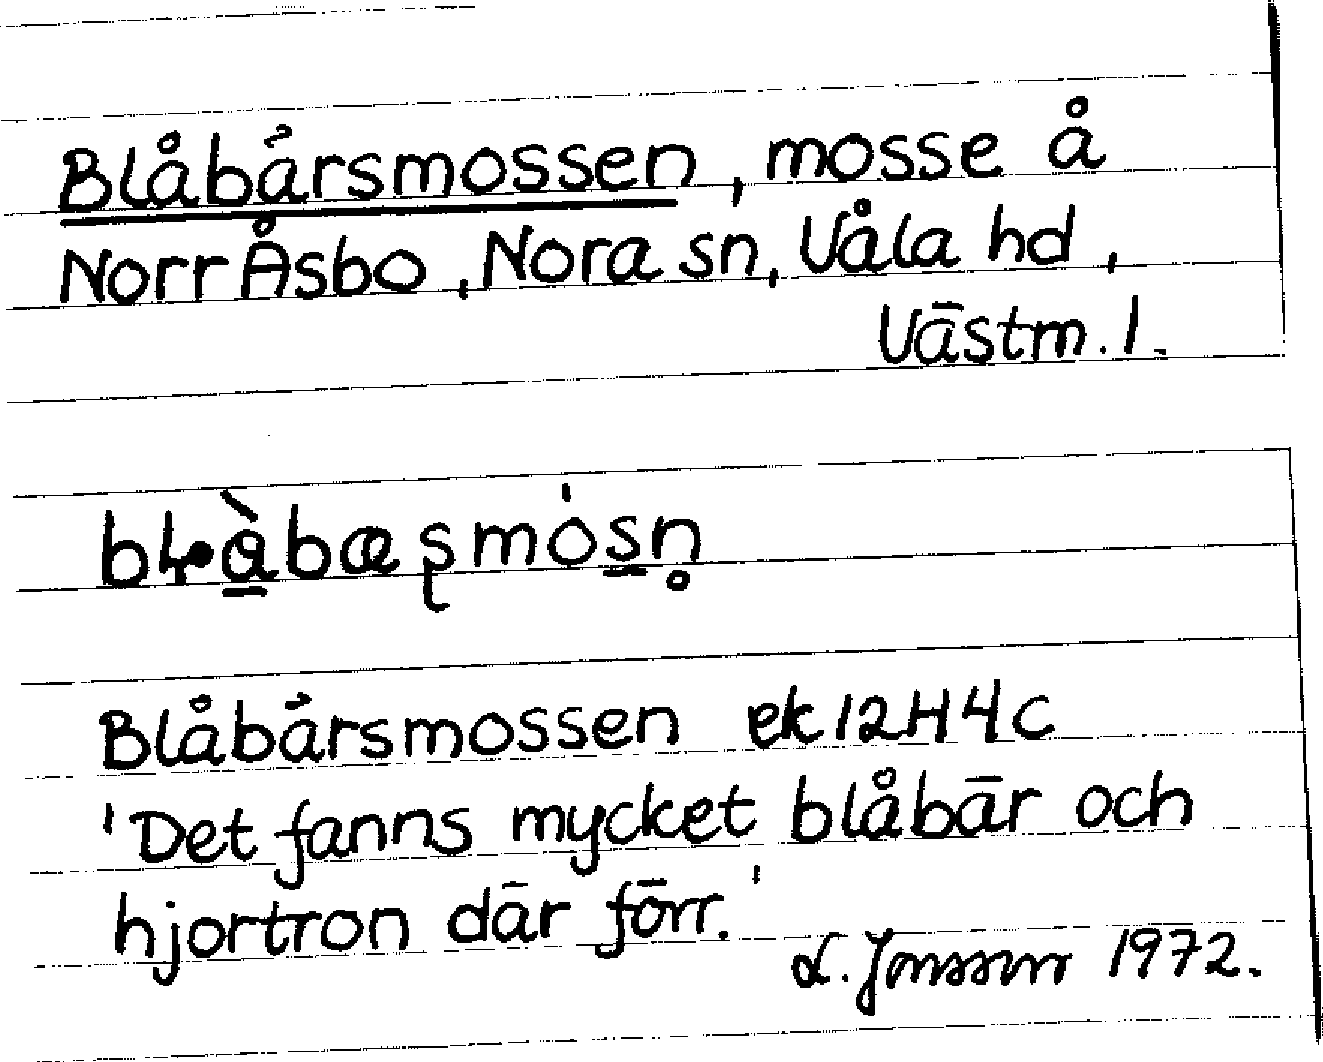 Blåbärsmossen, mosse å
Norr Åsbo, Nora sn, Våla hd,
Västm. l.
Blåbärsmossen ek 12H4c
'Det fanns mycket blåbär och
hjortron där förr.'
L. Jonsson 1972.